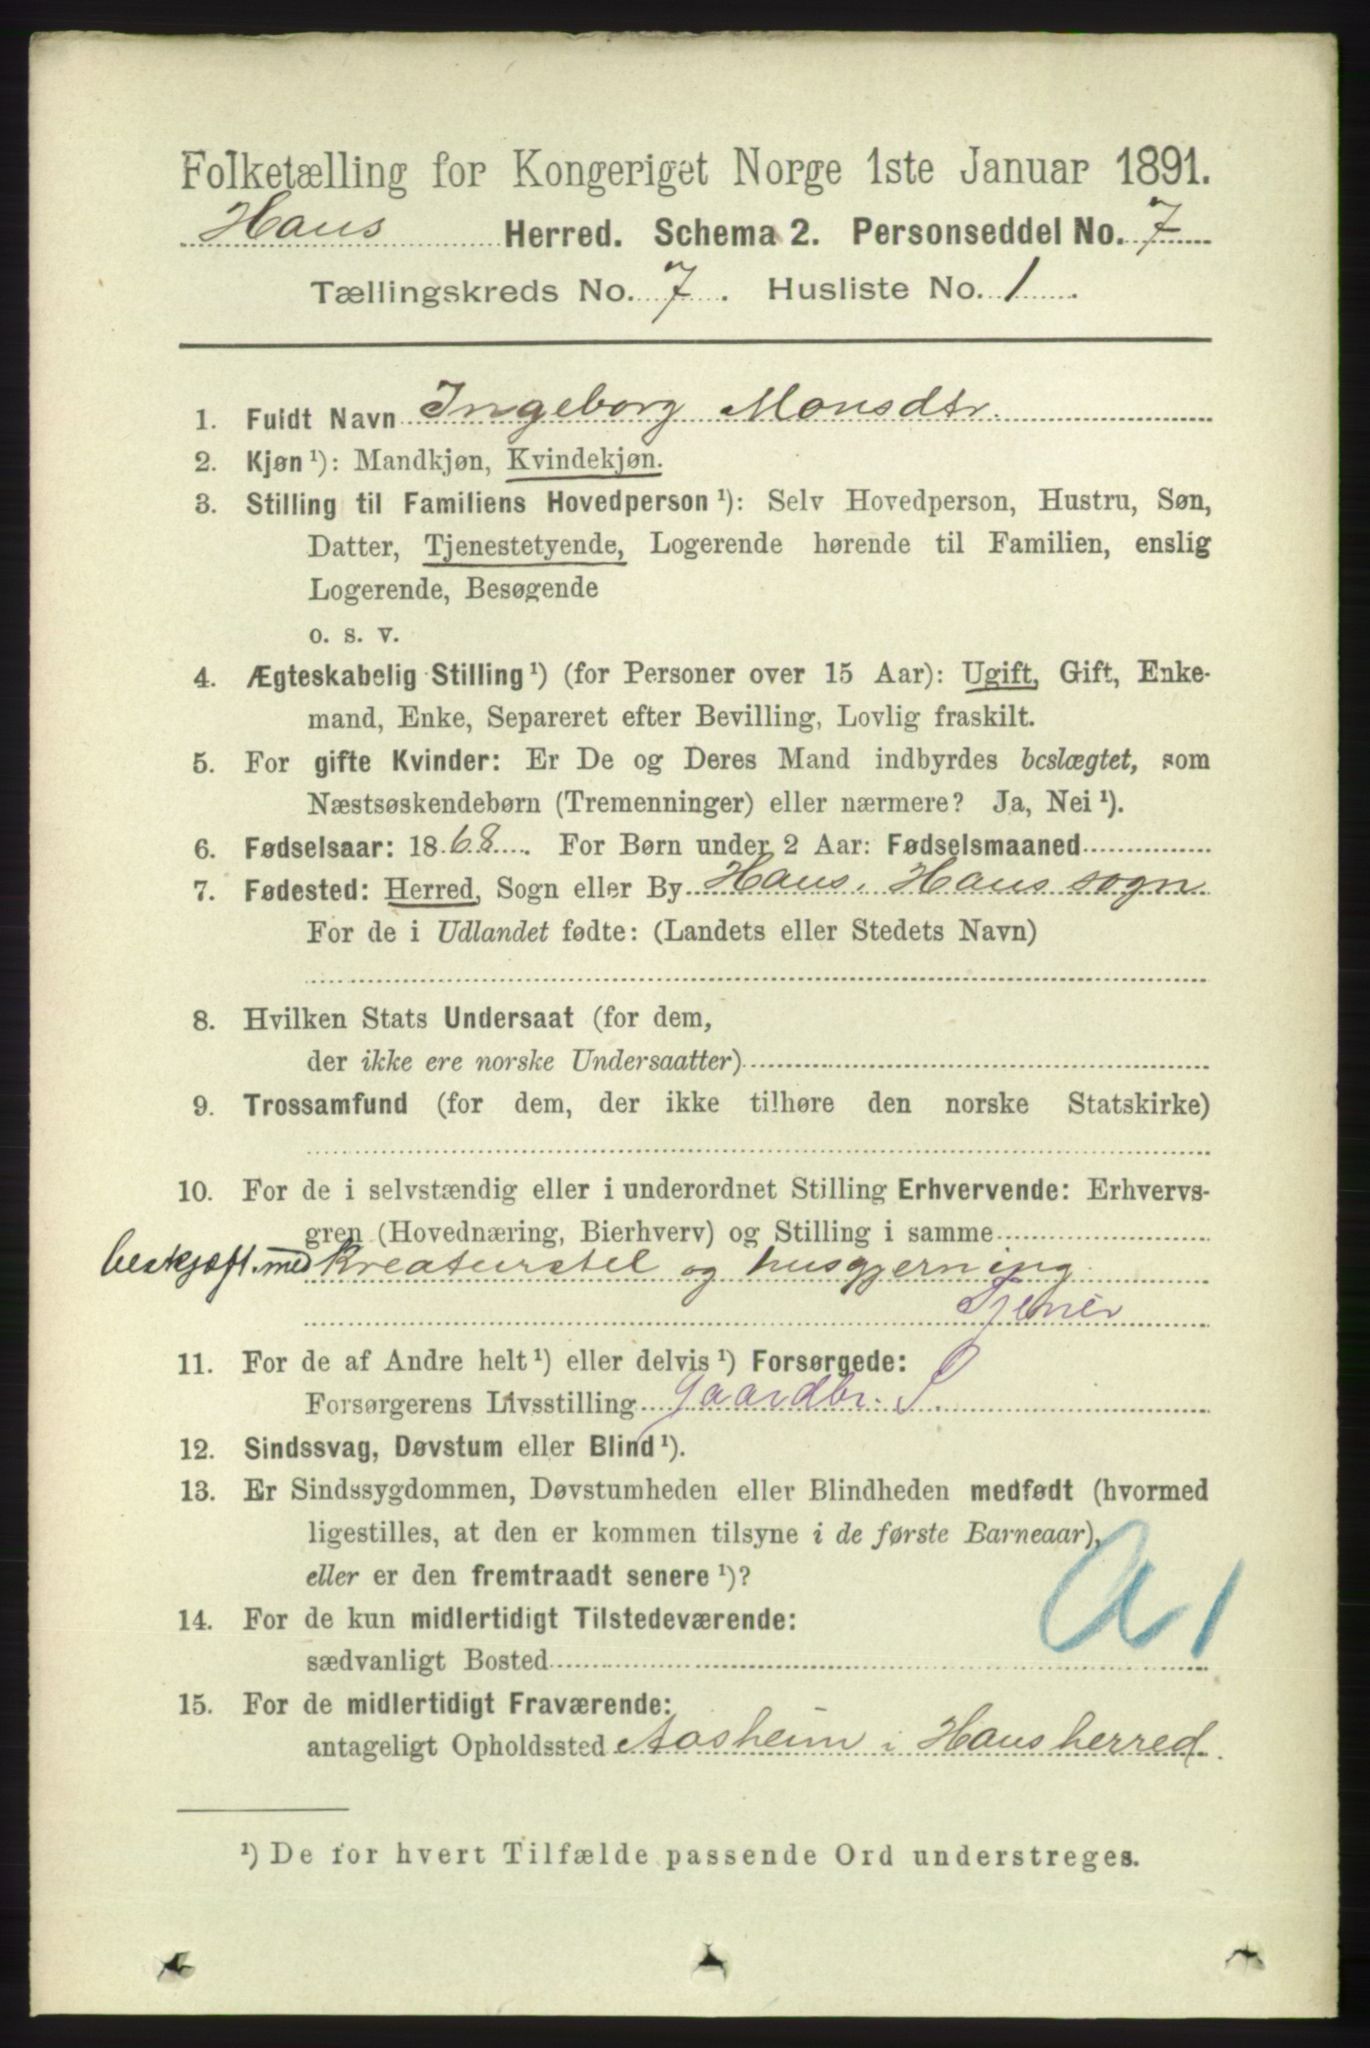 Folketælling for Kongeriget Norge 1ste Januar 1891.
Haus Herred. Schema 2. Personseddel No. 7
Tællingskreds No. 7. Husliste No. 1.
1. Fuldt Navn Ingeborg Monsdtr.
2. Kjøn ¹): Mandkjøn, Kvindekjøn.
3. Stilling til Familiens Hovedperson ¹): Selv Hovedperson, Hustru, Søn,
Datter, Tjenestetyende, Logerende hørende til Familien, enslig
Logerende, Besøgende
o. s. v.
4. Ægteskabelig Stilling ¹) (for Personer over 15 Aar): Ugift, Gift, Enke-
mand, Enke, Separeret efter Bevilling, Lovlig fraskilt.
5. For gifte Kvinder: Er De og Deres Mand indbyrdes beslægtet, som
Næstsøskendebørn (Tremenninger) eller nærmere? Ja, Nei ¹).
6. Fødselsaar: 1868. For Børn under 2 Aar: Fødselsmaaned
7. Fødested: Herred, Sogn eller By Haus, Haus sogn
For de i Udlandet fødte: (Landets eller Stedets Navn)
8. Hvilken Stats Undersaat (for dem,
der ikke ere norske Undersaatter)
9. Trossamfund (for dem, der ikke tilhøre den norske Statskirke)
10. For de i selvstændig eller i underordnet Stilling Erhvervende: Erhvervs-
gren (Hovednæring, Bierhverv) og Stilling i samme
beskjæft. med kreaturstel og husgjerning
Tjener
11. For de af Andre helt ¹) eller delvis ¹) Forsørgede:
Forsørgerens Livsstilling Gaardbr. S.
12. Sindssvag, Døvstum eller Blind ¹).
13. Er Sindssygdommen, Døvstumheden eller Blindheden medfødt (hvormed
ligestilles, at den er kommen tilsyne i de første Barneaar),
eller er den fremtraadt senere ¹)?
A 1
14. For de kun midlertidigt Tilstedeværende:
sædvanligt Bosted
15. For de midlertidigt Fraværende:
antageligt Opholdssted Aasheim i Haus herred.
¹) De for hvert Tilfælde passende Ord understreges.